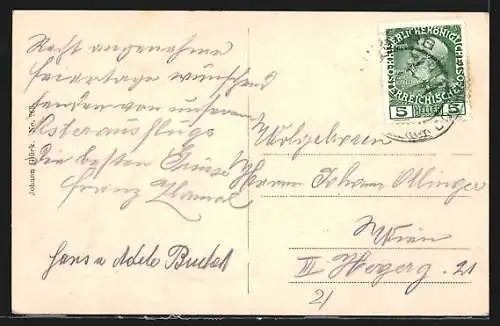 Recht angenehme
Feiertage wünschend
senden von unserem
Osterausfluge
die besten Grüße
Franz
Hans u Adele
Johann Glück. No.
KAISERLICHE KÖNIGLICHE
ÖSTERREICHISCHE POST
5 HELLER 5
Wolgeboren
Herrn Johann Ollinger
Wien
III Hegerg. 21
21